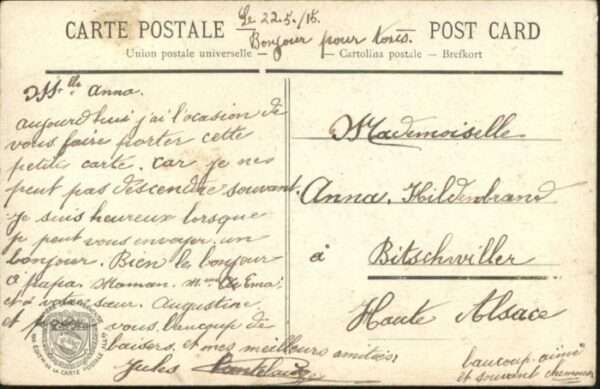 Le 22.5./15.
CARTE POSTALE
POST CARD
Bonjour pour tous.
Union postale universelle
Cartolina postale – Brefkort
Mlle Anna.
aujourd'hui j'ai l'ocasion de
vous faire porter cette
petite carte. car je ne
peut pas descendre souvant.
je suis heureux lorsque
je peut vous envoyer un
bonjour. Bien le bonjour
a papa. Maman. Ema
et a votre sœur. Augustine
et vous. baucoup de
baisers, et mes meilleurs amitiés.
Jules
Mademoiselle
Anna. Hildenbrand
à Bitschwiller
Haute Alsace
baucoup aimé
et souvant